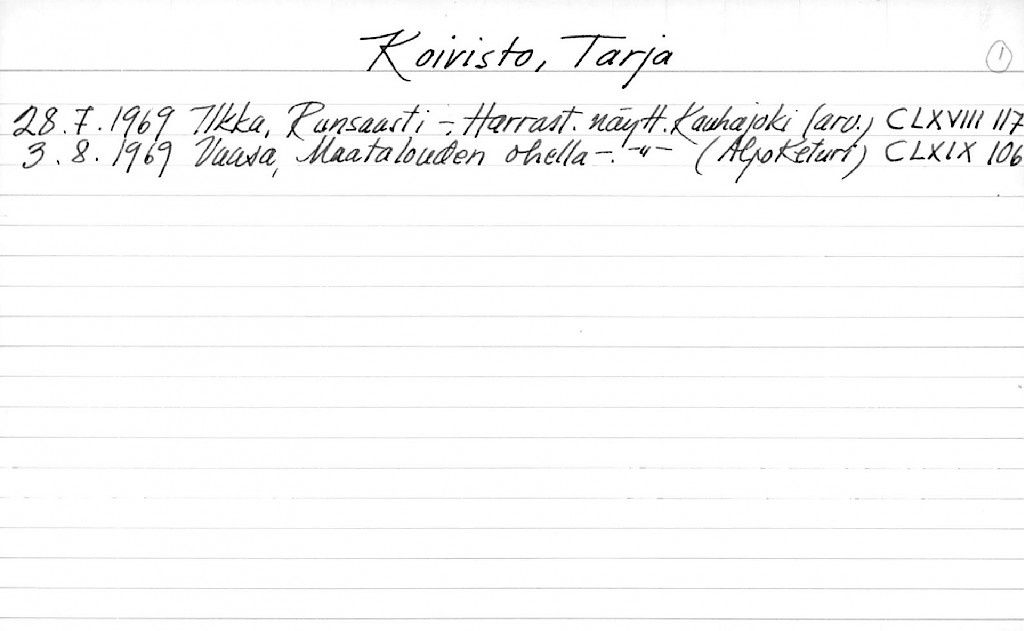 Koivisto, Tarja
1
28.7.1969 Ilkka, Runsaasti -, Harrast. näytt. Kauhajoki (arv.) CLXVIII 117
3.8.1969 Vaasa, Maatalouden ohella -. -"- (Alpo Keturi) CLXIX 106